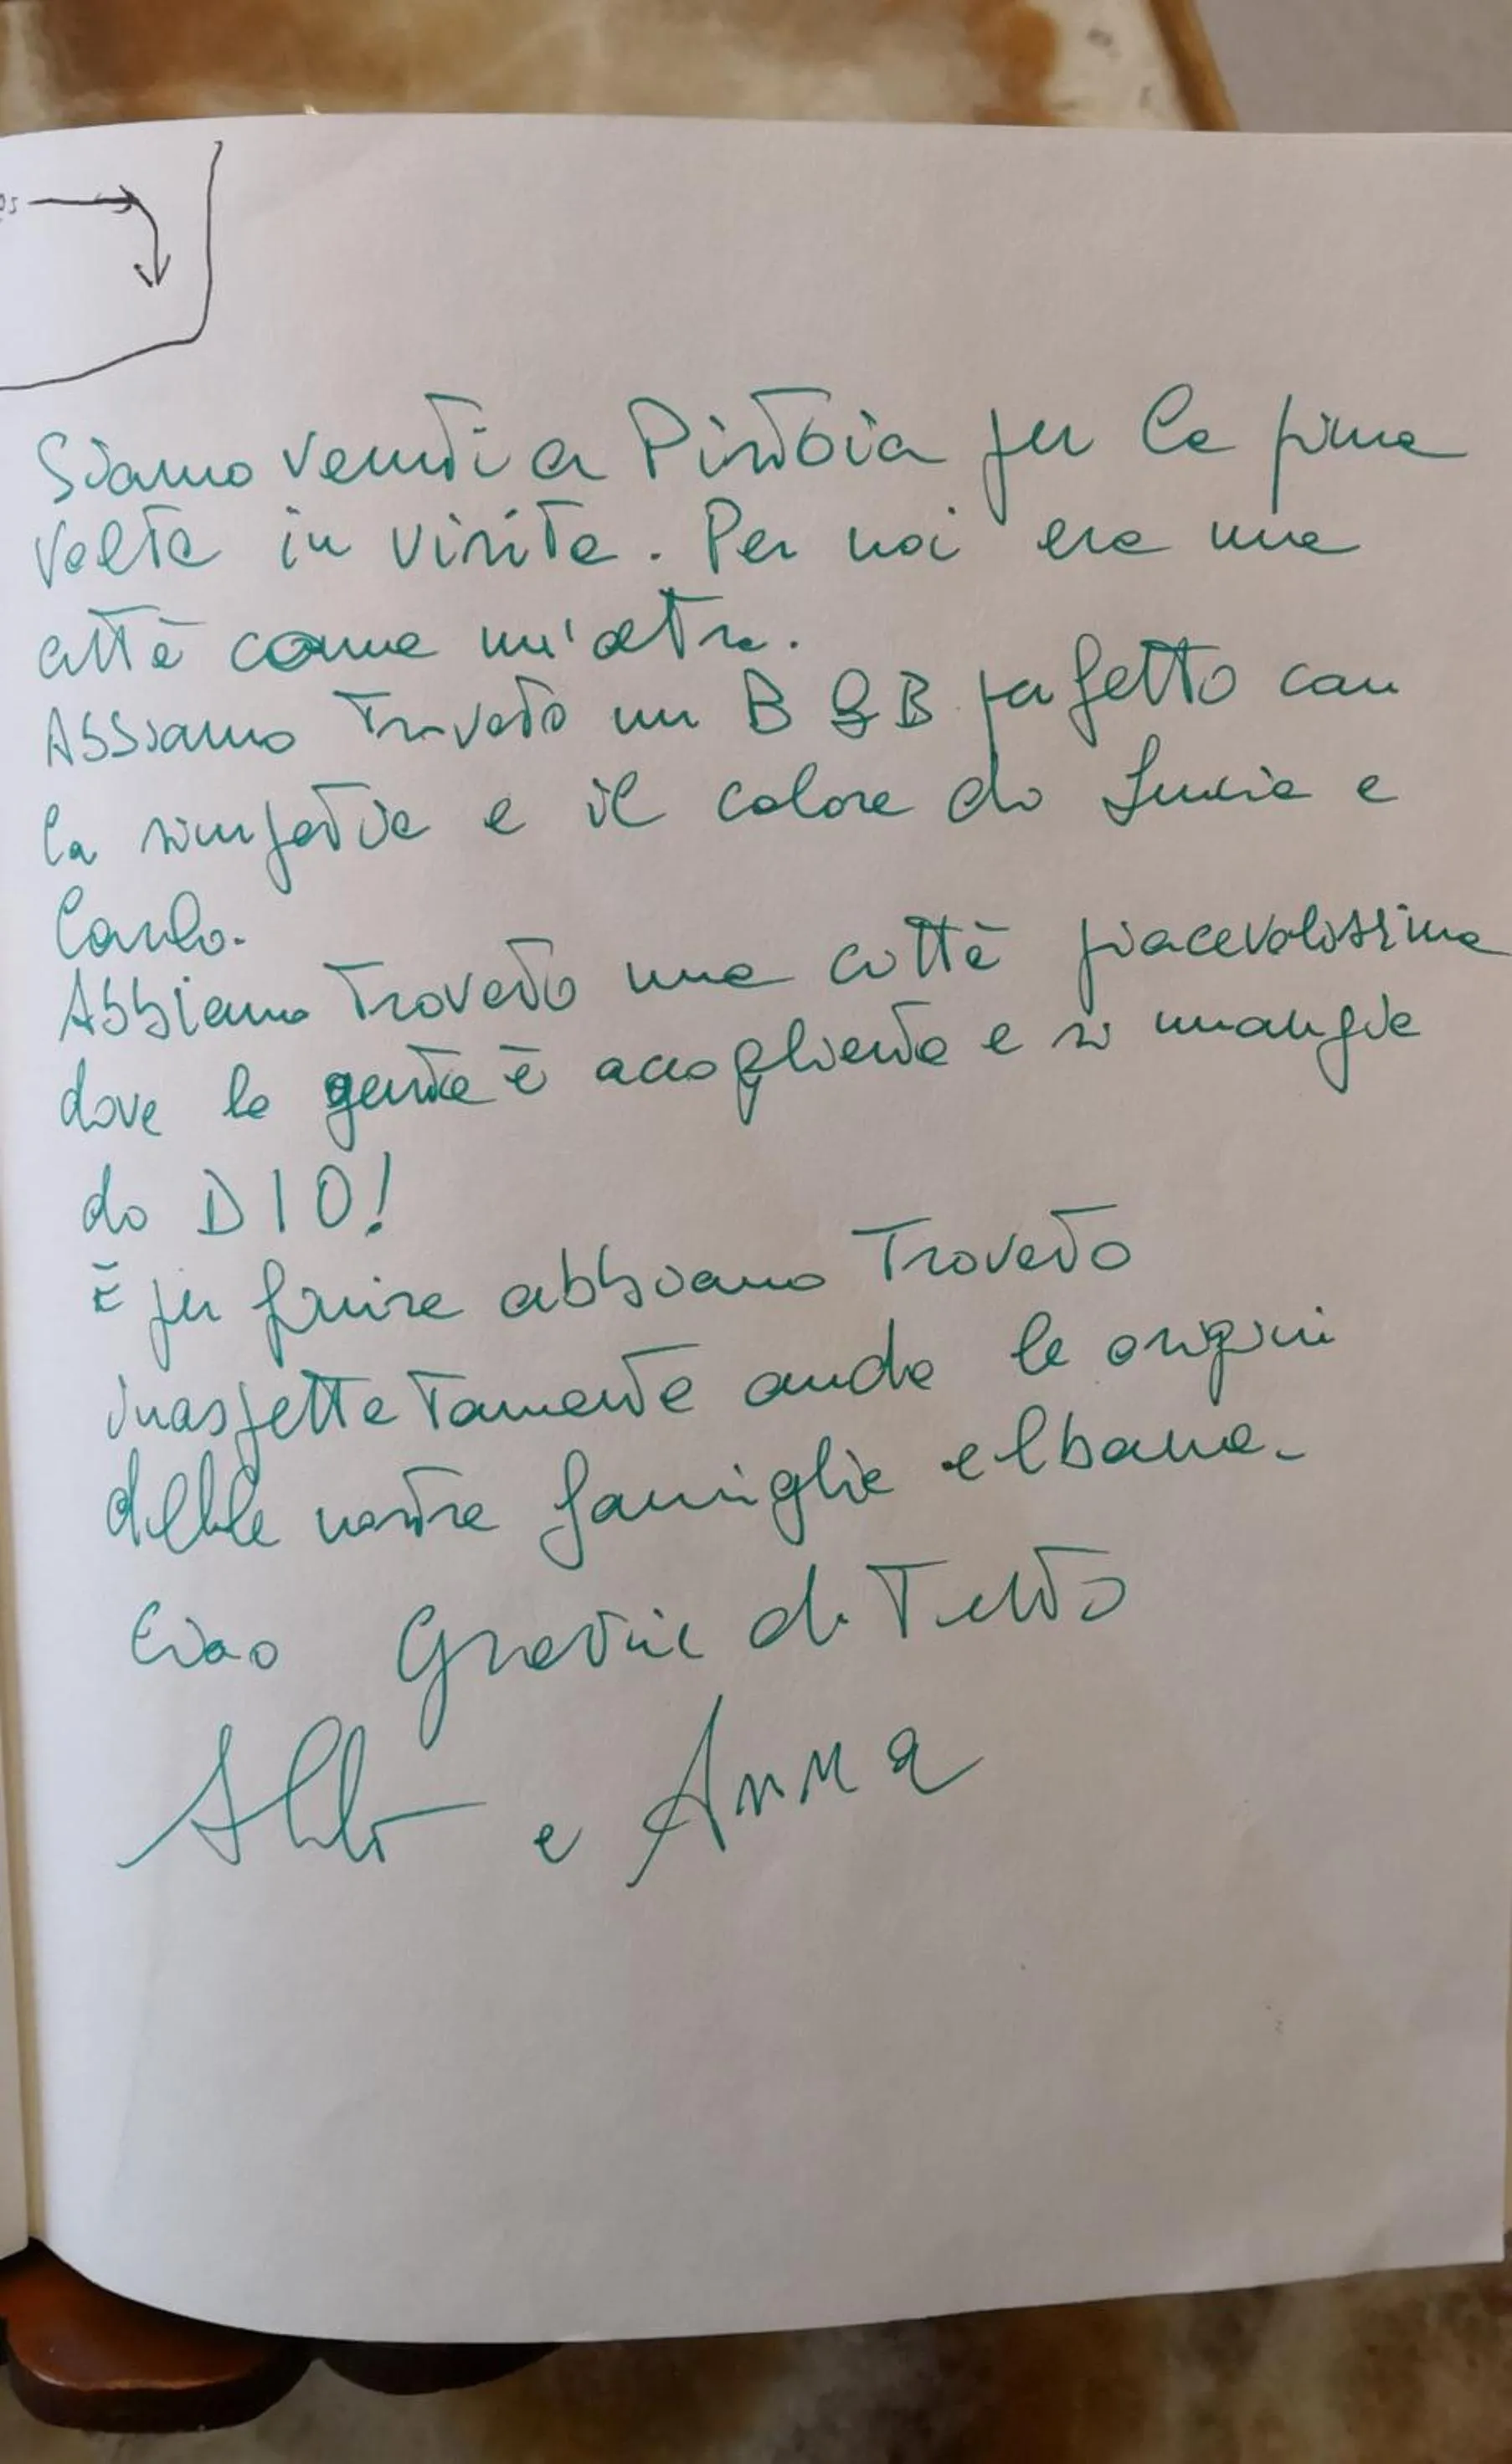 Siamo venuti a Pistoia per la prima
volta in visita. Per noi era una
città come un'altra.
Abbiamo trovato un B&B perfetto con
la simpatia e il calore di Lucia e
Carlo.
Abbiamo trovato una città piacevolissima
dove la gente è accogliente e si mangia
da DIO!
E per finire abbiamo trovato
inaspettatamente anche le origini
delle nostre famiglie elbane.
Ciao Grazie di Tutto
e Anna